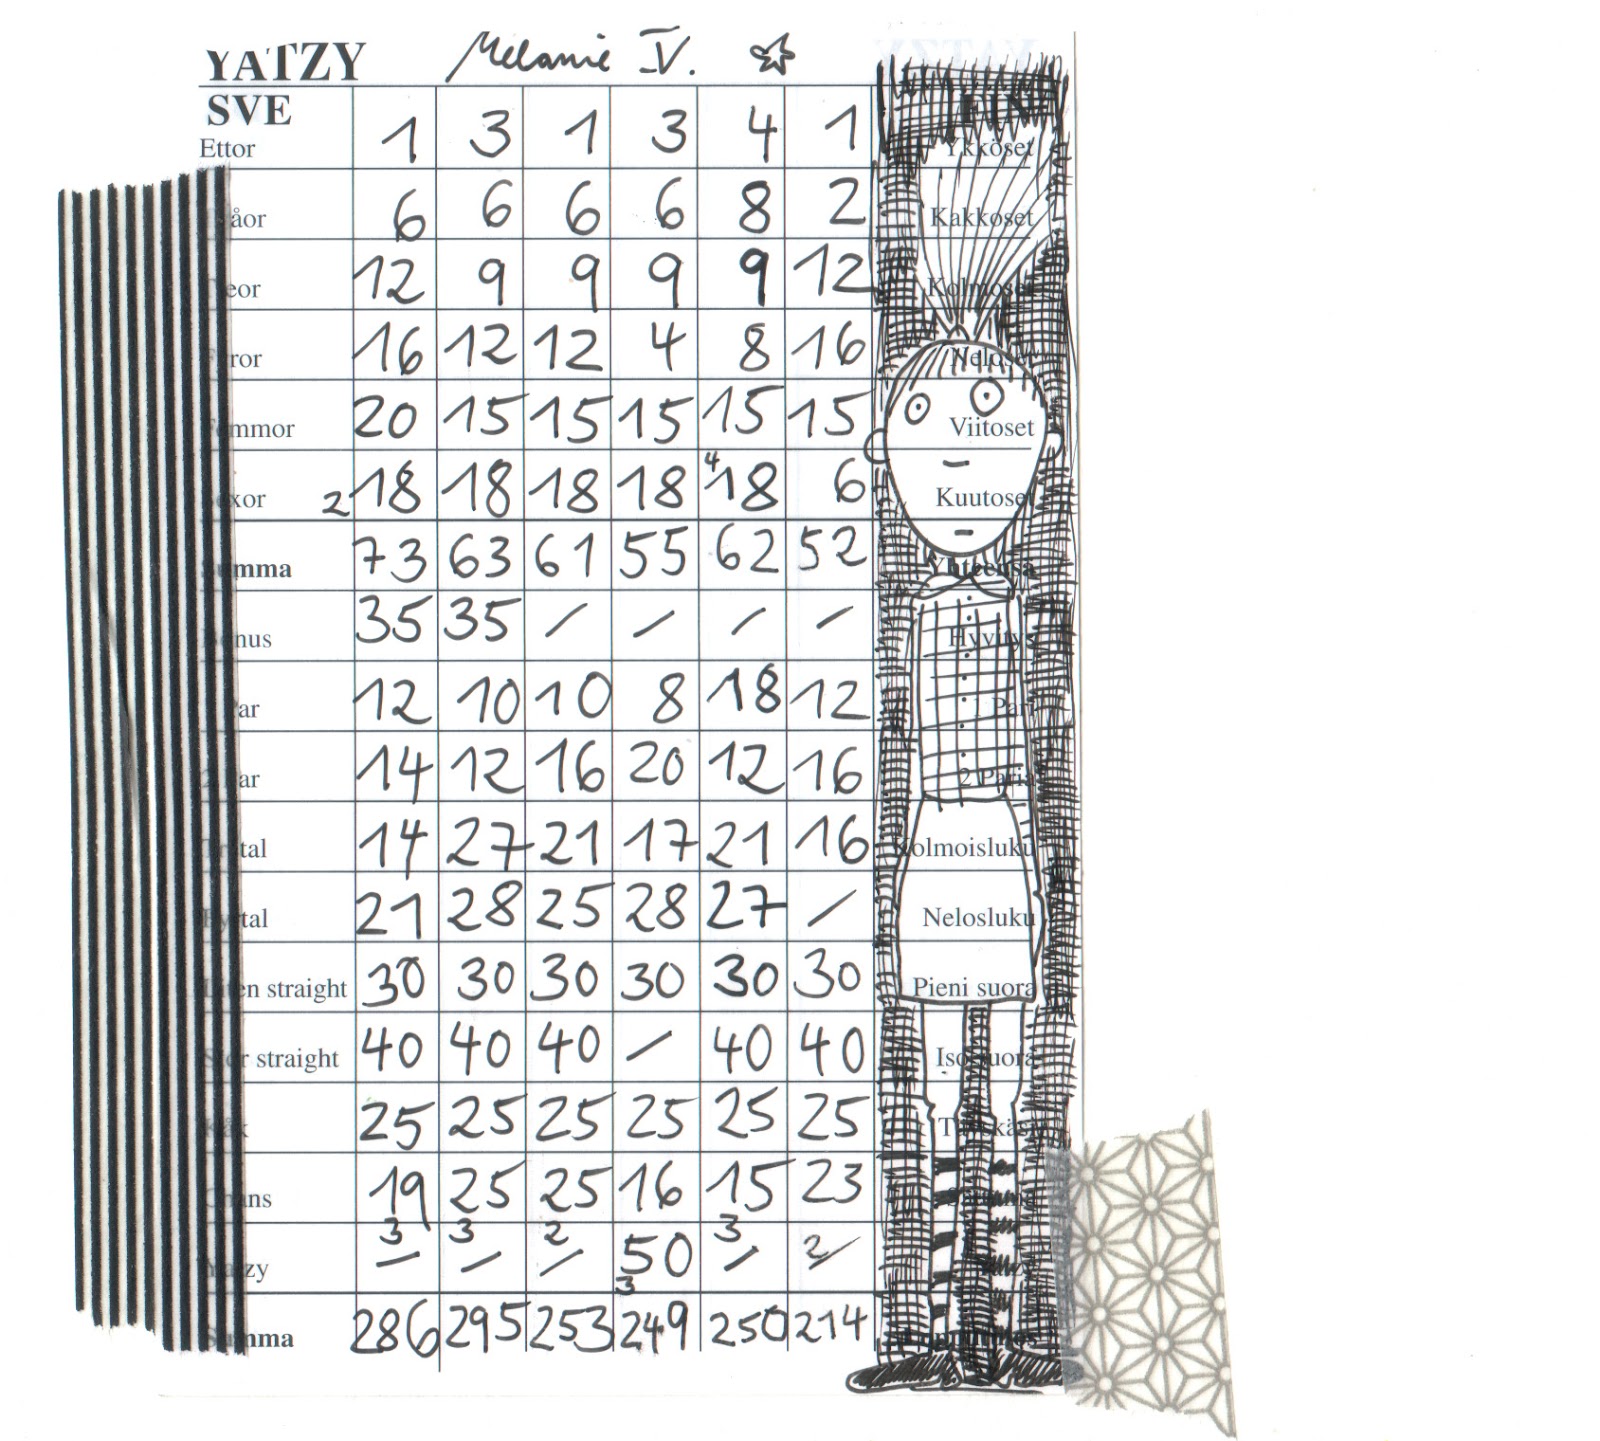 YATZY Melanie IV.
SVE
Ettor 1 3 1 3 4 1 Ykköset
åor 6 6 6 6 8 2 Kakkoset
eor 12 9 9 9 9 12 Kolmoset
ror 16 12 12 4 8 16 Neloset
mmor 20 15 15 15 15 15 Viitoset
xor 2 18 18 18 18 4 18 6 Kuutoset
Summa 73 63 61 55 62 52 Yhteensä
nus 35 35 / / / / Hyvitys
ar 12 10 10 8 18 12 1 Pari
2 ar 14 12 16 20 12 16 2 Paria
tal 14 27 21 17 21 16 Kolmoisluku
tal 21 28 25 28 27 / Nelosluku
en straight 30 30 30 30 30 30 Pieni suora
r straight 40 40 40 / 40 40 Iso suora
k 25 25 25 25 25 25
ans 19 25 25 16 15 23
3 3 2 3
zy – – / 50 / 2/
3
Summa 286 295 253 249 250 214